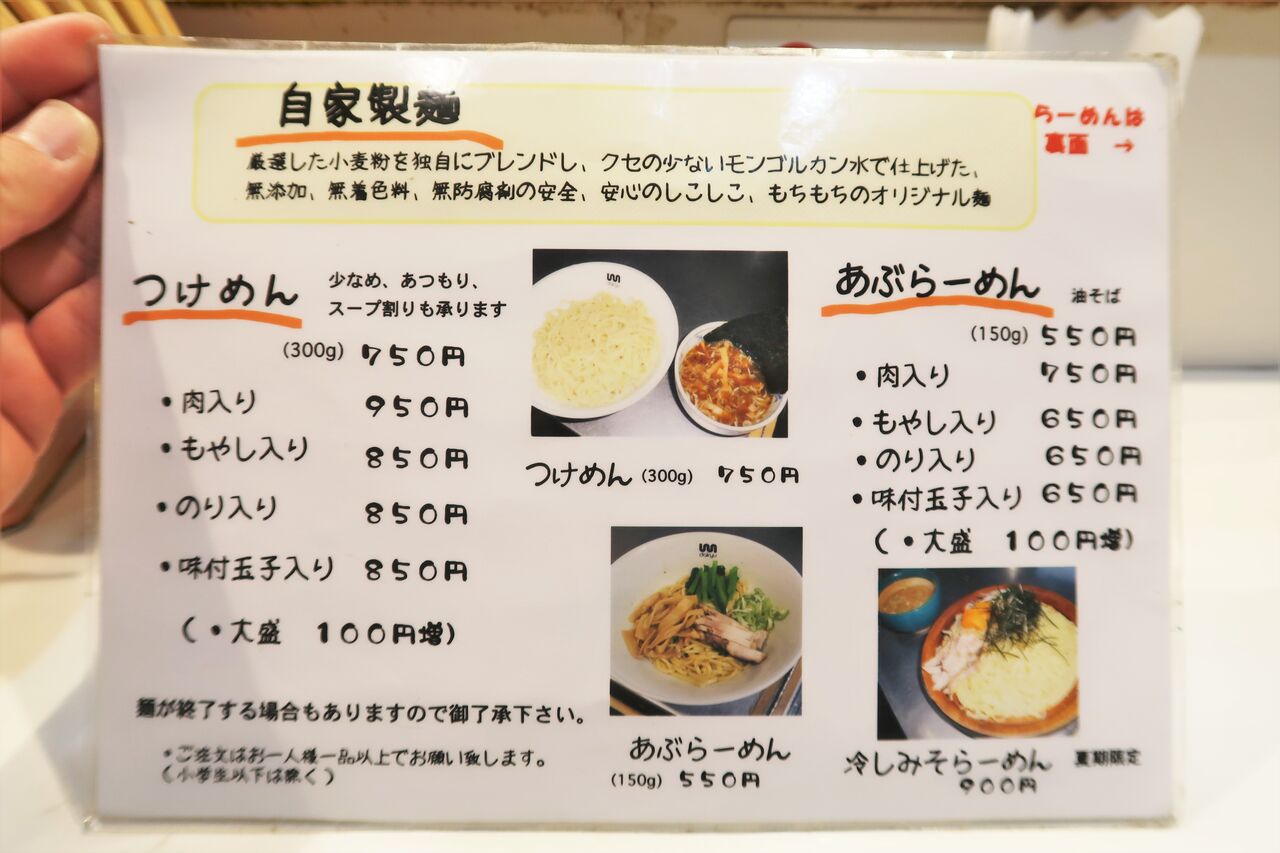 自家製麺
らーめんは
裏面 →
厳選した小麦粉を独自にブレンドし、クセの少ないモンゴルカン水で仕上げた、
無添加、無着色料、無防腐剤の安全、安心のしこしこ、もちもちのオリジナル麺
つけめん 少なめ、あつもり、
スープ割りも承ります
(300g) 750円
・肉入り 950円
・もやし入り 850円
・のり入り 850円
・味付玉子入り 850円
(・大盛 100円増)
麺が終了する場合もありますので御了承下さい。
・ご注文はお一人様一品以上でお願い致します。
(小学生以下は除く)
つけめん (300g) 750円
あぶらーめん
(150g) 550円
あぶらーめん 油そば
(150g) 550円
・肉入り 750円
・もやし入り 650円
・のり入り 650円
・味付玉子入り 650円
(・大盛 100円増)
冷しみそらーめん 夏期限定
900円